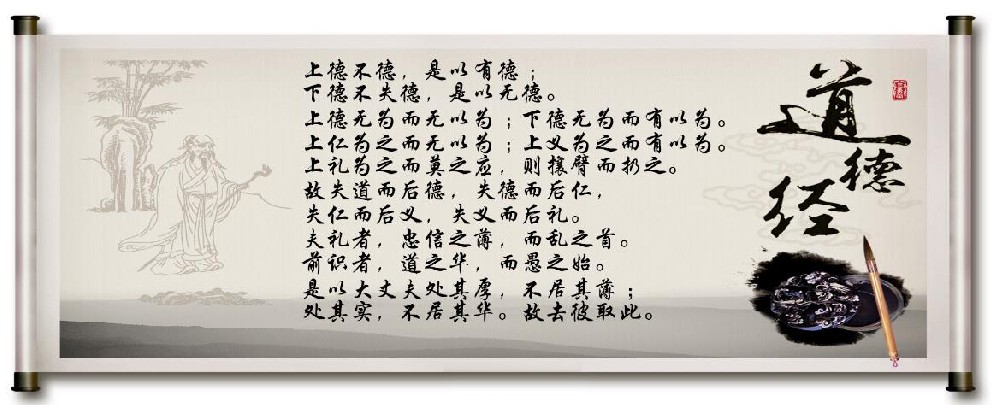 上德不德，是以有德；
下德不失德，是以无德。
上德无为而无以为；下德无为而有以为。
上仁为之而无以为；上义为之而有以为。
上礼为之而莫之应，则攘臂而扔之。
故失道而后德，失德而后仁，
失仁而后义，失义而后礼。
夫礼者，忠信之薄，而乱之首。
前识者，道之华，而愚之始。
是以大丈夫处其厚，不居其薄；
处其实，不居其华。故去彼取此。
道德经